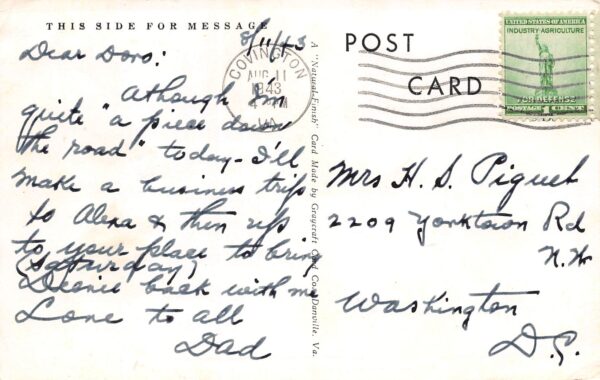 THIS SIDE FOR MESSAGE
8/11/43
Dear Doro:
Athough I'm
quite "a piece down
the road" today - I'll
make a business trip
to Alexa & then up
to your place to bring
(Saturday)
back with me
Love to all
Dad
COVINGTON
AUG 11
1943
VA.
A "Natural-Finish" Card Made by Graycraft Card Co., Danville, Va.
POST
CARD
UNITED STATES OF AMERICA
INDUSTRY-AGRICULTURE
FOR DEFENSE
POSTAGE 1 CENT
Mrs H. S. Piquet
2209 Yorktown Rd
N.W.
Washington
D.C.